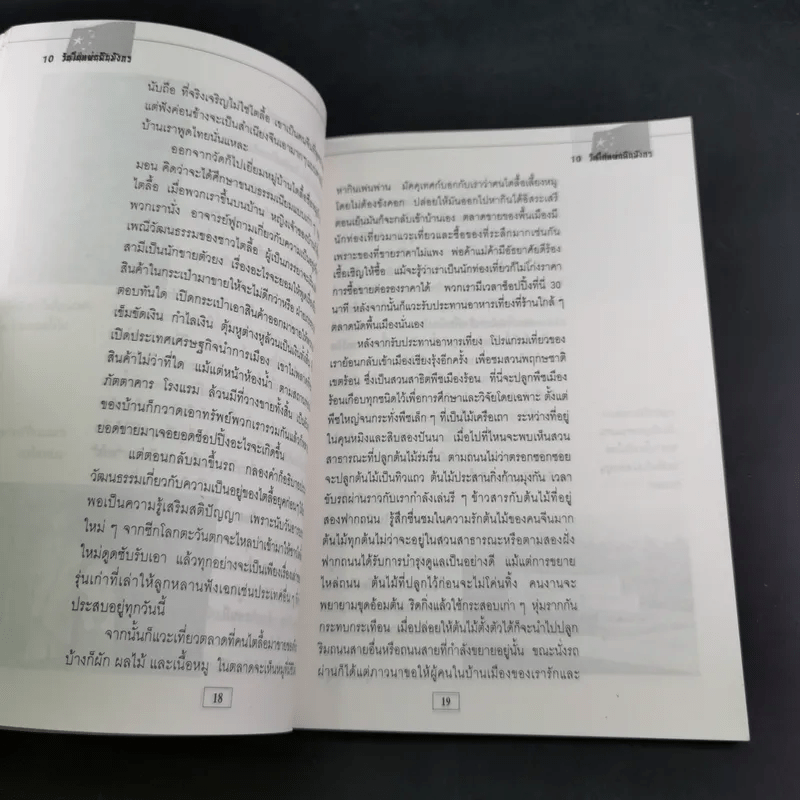 10 วันใต้หล้าฟ้ามังกร
นับถือ ที่จริงเจริญไม่ใช่ไตลื้อ เขาเป็นคนจีน
แต่ฟังค่อนข้างจะเป็นสำเนียงจีนเอามาก ๆ
บ้านเราพูดไทยนั่นแหละ
ออกจากวัดก็ไปเยี่ยมหมู่บ้านไตลื้อ
มอน คิดว่าจะได้ศึกษาขนบธรรมเนียม
ไตลื้อ เมื่อพวกเราขึ้นบนบ้าน หญิงเจ้าของบ้าน
พวกเรานั่ง อาจารย์ฟูถามเกี่ยวกับความเป็น
เพณีวัฒนธรรมของชาวไตลื้อ ผู้เป็นภรรยา
สามีเป็นนักขายตัวยง เรื่องอะไรจะยอมให้
สินค้าในกระเป๋ามาขายให้จะไม่ดีกว่าหรือ
ตอบทันใด เปิดกระเป๋าเอาสินค้าออกมาขาย
เข็มขัดเงิน กำไลเงิน ตุ้มหูต่างหูล้วนเป็นเงินทั้ง
เปิดประเทศเศรษฐกิจนำการเมือง เขาไม่พลาด
สินค้าไม่ว่าที่ใด แม้แต่หน้าห้องน้ำ ตาม
ภัตตาคาร โรงแรม ล้วนมีที่วางขายทั้งสิ้น
ของบ้านก็กวาดเอาทรัพย์พวกเรารวมกันแล้ว
ยอดขายมาเจอยอดช็อปปิ้งอะไรจะเกิดขึ้น
แต่ตอนกลับมาขึ้นรถ กลองคำก็อธิบาย
วัฒนธรรมเกี่ยวกับความเป็นอยู่ของไตลื้อยุคก่อน
พอเป็นความรู้เสริมสติปัญญา เพราะนับวัน
ใหม่ ๆ จากซีกโลกตะวันตกจะไหลบ่าเข้ามาให้
ใหม่ดูดซับรับเอา แล้วทุกอย่างจะเป็นเพียงเรื่อง
รุ่นเก่าที่เล่าให้ลูกหลานฟังเฉกเช่นประเทศอื่น ๆ
ประสบอยู่ทุกวันนี้
จากนั้นก็แวะเที่ยวตลาดที่คนไตลื้อมาขายของ
บ้างก็ผัก ผลไม้ และเนื้อหมู ในตลาดจะเห็นหมู
18
10 วันใต้หล้าฟ้ามังกร
หากินเพ่นพ่าน มัคคุเทศก์บอกกับเราว่าคนไตลื้อเลี้ยงหมู
โดยไม่ต้องขังคอก ปล่อยให้มันออกไปหากินได้อิสระเสรี
ตอนเย็นมันก็จะกลับเข้าบ้านเอง ตลาดขายของพื้นเมืองมี
นักท่องเที่ยวมาแวะเที่ยวและซื้อของที่ระลึกมากเช่นกัน
เพราะของที่ขายราคาไม่แพง พ่อค้าแม่ค้ามีอัธยาศัยดีร้อง
ชื้อเชิญให้ซื้อ แม้จะรู้ว่าเราเป็นนักท่องเที่ยวก็ไม่โก่งราคา
การซื้อขายต่อรองราคาได้ พวกเรามีเวลาช็อปปิ้งที่นี่ 30
นาที หลังจากนั้นก็แวะรับประทานอาหารเที่ยงที่ร้านใกล้ ๆ
ตลาดนัดพื้นเมืองนั่นเอง
หลังจากรับประทานอาหารเที่ยง โปรแกรมเที่ยวของ
เราย้อนกลับเข้าเมืองเชียงรุ้งอีกครั้ง เพื่อชมสวนพฤกษชาติ
เขตร้อน ซึ่งเป็นสวนสาธิตพืชเมืองร้อน ที่นี่จะปลูกพืชเมือง
ร้อนเกือบทุกชนิดไว้เพื่อการศึกษาและวิจัยโดยเฉพาะ ตั้งแต่
พืชใหญ่จนกระทั่งพืชเล็ก ๆ ที่เป็นไม้เครือเถา ระหว่างที่อยู่
ในคุนหมิงและสิบสองปันนา เมื่อไปที่ไหนจะพบเห็นสวน
สาธารณะที่ปลูกต้นไม้ร่มรื่น ตามถนนไม่ว่าตรอกซอกซอย
จะปลูกต้นไม้เป็นทิวแถว ต้นไม้ประสานกิ่งก้านมุงกัน เวลา
ขับรถผ่านราวกับเรากำลังเล่นรี ๆ ข้าวสารกับต้นไม้ที่อยู่
สองฟากถนน รู้สึกชื่นชมในความรักต้นไม้ของคนจีนมาก
ต้นไม้ทุกต้นไม่ว่าจะอยู่ในสวนสาธารณะหรือตามสองฝั่ง
ฟากถนนได้รับการบำรุงดูแลเป็นอย่างดี แม้แต่การขยาย
ไหล่ถนน ต้นไม้ที่ปลูกไว้ก่อนจะไม่โค่นทิ้ง คนงานจะ
พยายามขุดล้อมต้น ริดกิ่งแล้วใช้กระสอบเก่า ๆ หุ้มรากกัน
กระทบกระเทือน เมื่อปล่อยให้ต้นไม้ตั้งตัวได้ก็จะนำไปปลูก
ริมถนนสายอื่นหรือถนนสายที่กำลังขยายอยู่นั้น ขณะนั่งรถ
ผ่านก็ได้แต่ภาวนาขอให้ผู้คนในบ้านเมืองของเรารักและ
19